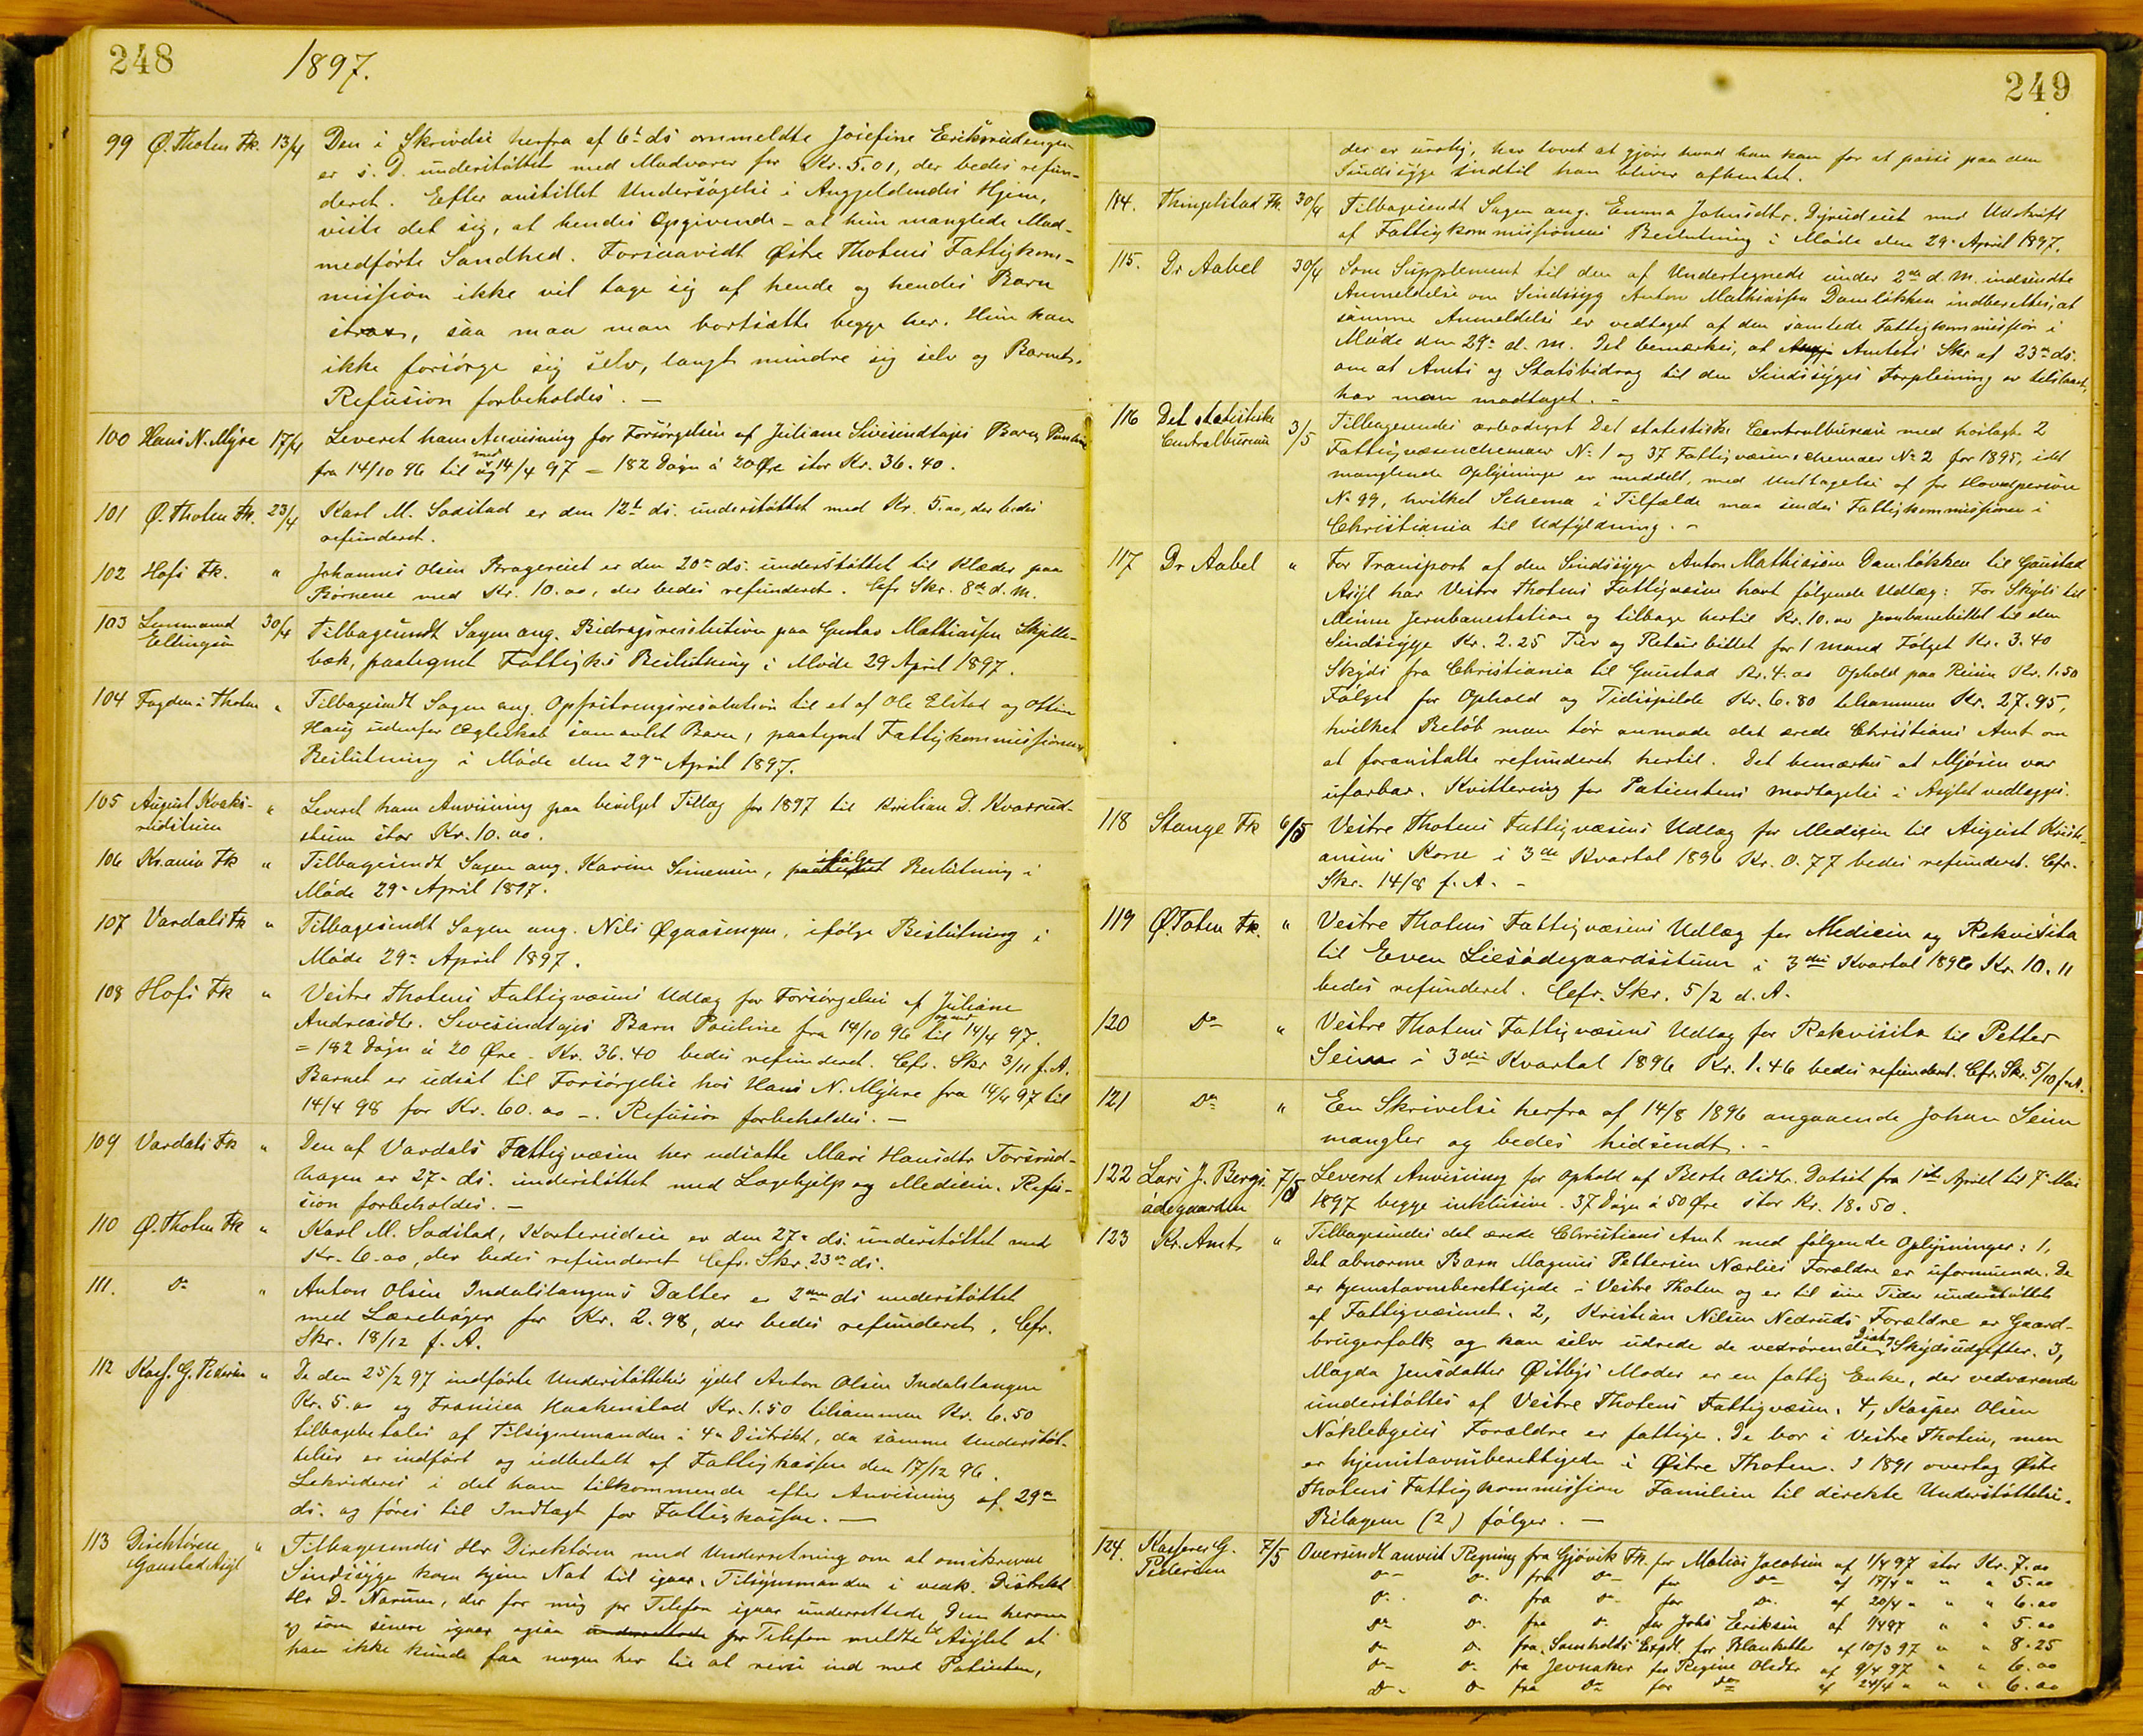 248
1897.
99 Ø. Thoten Fk. 13/4 Den i Skrivelse herfra af 6te ds ommeldte Josefine Eriksrudengen
er s. D. understøttet med Madvarer for Kr. 5.01, der bedes refun-
deret. Efter anstillet Undersøgelse i Angjeldendes Hjem,
viste det sig, at hendes Opgivende - at hun manglede Mad -
medførte Sandhed. Forsaavidt Østre Thotens Fattigkom-
mission ikke vil tage sig af hende og hendes Barn
strax, saa maa man bortsætte begge her. Hun kan
ikke forsørge sig selv, langt mindre sig selv og Barnet.
Refusion forbeholdes. —
100 Hans N. Myre 17/4 Leveret ham Anvisning for Forsørgelsen af Juliane Sivesindtajes Barn Pauline
fra 14/10 96 til og med 14/4 97 = 182 Døgn à 20 Øre stor Kr. 36.40.
101 Ø. Thoten Fk. 23/4 Karl M. Sodstad er den 12te ds. understøttet med Kr. 5.00, der bedes
refunderet.
102 Hofs Fk. " Johannes Olsen Bragereiet er den 20de ds. understøttet til Klæder paa
Børnene med Kr. 10.00, der bedes refunderet. Cfr Skr. 8de d. M.
103 Lensmand 30/4 Tilbagesendt Sagen ang. Bidragsresolution paa Gustav Mathiassen Skjelle-
Ellingsen bæk, paategnet Fattigks Beslutning i Møde 29 April 1897.
104 Fogden i Thoten " Tilbagesendt Sagen ang. Opfostrungsresolution til et af Ole Elstad og Ottine
Haug udenfor Ægteskab sammavlet Barn, paategnet Fattigkommissionens
Beslutning i Møde den 29de April 1897.
105 August Kvaks- " Leveret ham Anvisning paa bevilget Tillæg for 1897 til Kristian D. Kvarrud-
rudstuen stuen stor Kr. 10.00.
106 Kr.ania Fk " Tilbagesendt Sagen ang. Karine Simensen, paategnet ifølge Beslutning i
Møde 29de April 1897.
107 Vardals Fk " Tilbagesendt Sagen ang. Nils Øgaasengen, ifølge Beslutning i
Møde 29de April 1897.
108 Hofs Fk " Vestre Thotens Fattigvæsens Udlæg for Forsørgelse af Juliane
Andreasdtr. Sivesindtajes Barn Pauline fra 14/10 96 til og med 14/4 97.
= 182 Døgn à 20 Øre - Kr. 36.40 bedes refunderet. Cfr. Skr 3/11 f. A.
Barnet er udsat til Forsørgelse hos Hans N. Myhre fra 14/4 97 til
14/4 98 for Kr. 60.00 -. Refusion forbeholdes. —
109 Vardals Fk " Den af Vardals Fattigvæsen her udsatte Mari Hansdtr Torsrud-
hagen er 27de ds. understøttet med Lægehjelp og Medicin. Refu-
sion forbeholdes. —
110 Ø. Thoten Fk " Karl M. Sodstad, Korterudeie er den 27de ds. understøttet med
Kr. 6.00, der bedes refunderet Cfr. Skr. 23de ds.
111. Do " Anton Olsen Indalslangens Datter er 2den ds understøttet
med Lærebøger for Kr. 2.98, der bedes refunderet. Cfr.
Skr. 18/12 f. A.
112 Kass. G. Pedersen " De den 25/2 97 indførte Understøttelser ydet Anton Olsen Indalslangen
Kr. 5.00 og Fransisca Haakenstad Kr. 1.50 tilsammen Kr. 6.50
tilbagebetales af Tilsynsmanden i 4de Distrikt, da samme Understøt-
telser er indført og udbetalt af Fattigkassen den 17/12 96.
Likvideres i det ham tilkommende efter Anvisning af 29de
ds. og føres til Indtægt for Fattigkassen. —
113 Direktøren " Tilbagesendes Hr Direktøren med Underretning om at omskrevne
Gaustad Asyl Sindssyge kom hjem Nat til igaar. Tilsynsmanden i vedk. Distrikt
Hr D. Narum, der for mig pr Telefon igaar underrettede Dem herom
og som senere igaar ogsaa underrettede pr Telefon meldte til Asylet at
han ikke kunde faa nogen her til at reise ind med Patienten,
249
der er urolig, har lovet at gjøre hvad han kan for at passe paa den
Sindssyge indtil han bliver afhentet.
114. Thingelstad Fk. 30/4 Tilbagesendt Sagen ang. Emma Johnsdtr. Dyrudeiet med Udskrift
af Fattigkommissionens Beslutning i Møde den 29de April 1897.
115. Dr Aabel 30/4 Som Supplement til den af Undertegnede under 2den d. M. indsendte
Anmeldelse om Sindssyg Anton Mathiassen Damløkken indberettes, at
samme Anmeldelse er vedtaget af den samlede Fattigkommission i
Møde den 29de d. M. Det bemærkes, at Amtets Skr af 23de ds.
om at Amts og Statsbidrag til den Sindssyges Forpleining er tilstaaet,
har man modtaget. -
116 Det statistiske 3/5 Tilbagesendes ærbødigst Det statistiske Centralbureau med høslagte 2
Centralbureau Fattigvæsenschemaer No 1 og 37 Fattigvæsenschemaer No 2 for 1895, idet
manglende Oplysninger er meddelt, med Undtagelse af for Hovedperson
No 99, hvilket Schema i Tilfælde maa sendes Fattigkommissionen i
Christiania til Udfyldning. -
117 Dr Aabel " For Transport af den Sindssyge Anton Mathiassen Damløkken til Gaustad
Asyl har Vestre Thotens Fattigvæsen havt følgende Udlæg: For Skyds til
Minne Jernbanestation og tilbage hertil Kr. 10.00 Jernbanebillet til den
Sindssyge Kr. 2.25 Tur og Retur billet for 1 mand Følget Kr. 3.40
Skyds fra Christiania til Gaustad Kr. 4.00 Ophold paa Reisen Kr. 1.50
Følget for Ophold og Tidsspilde Kr. 6.80 tilsammen Kr. 27.95,
hvilket Beløb man tør anmode det ærede Christians Amt om
at foranstalte refunderet hertil. Det bemærkes at Mjøsen var
ufarbar. Kvittering for Patientens modtagelse i Asylet vedlægges.
118 Stange Fk 6/5 Vestre Thotens Fattigvæsens Udlæg for Medicin til August Kristi-
ansens Kone i 3de Kvartal 1896 Kr. 0.77 bedes refunderet. Cfr.
Skr. 14/8 f. A. -
119 Ø. Toten Fk. " Vestre Thotens Fattigvæsens Udlæg for Medicin og Rekvisita
til Even Liesødegaardsstuen i 3die Kvartal 1896 Kr. 10.11
bedes refunderet. Cfr. Skr. 5/2 d. A.
120 Do " Vestre Thotens Fattigvæsens Udlæg for Rekvisita til Petter
Seim i 3die Kvartal 1896 Kr. 1.46 bedes refunderet. Cfr. Skr. 5/10 f. A.
121 Do " En Skrivelse herfra af 14/8 1896 angaaende Johan Seim
mangler og bedes hidsendt. -
122 Lars J. Bergs- 7/5 Leveret Anvisning for Ophold af Berte Olsdtr. Dotset fra 1ste April til 7de Mai
ødegaarden 1897 begge inklusive. 37 Døgn à 50 Øre stor Kr. 18.50.
123 Kr. Amt " Tilbagesendes det ærede Christians Amt med følgende Oplysninger: 1,
Det abnorme Barn Magnus Pettersen Nærlies Forældre er uformuende. De
er hjemstavnsberettigede i Vestre Thoten og er til sine Tider understøttet
af Fattigvæsenet. 2, Kristian Nilsen Nedruds Forældre er Gaard-
brugerfolk og kan selv udrede de vedrørende Skydsudgifter. 3,
Magda Jensdatter Østbys Moder er en fattig Enke, der vedvarende
understøttes af Vestre Thotens Fattigvæsen. 4, Kasper Olsen
Nøklebyeies Forældre er fattige. De bor i Vestre Thoten, men
er hjemstavnsberettigede i Østre Thoten. I 1891 overtog Østre
Thotens Fattigkommission Familien til direkte Understøttelse.
Bilagene (2) følger. —
124. Kasserer G. 7/5 Oversendt anvist Regning fra Gjøvik Fk. for Matias Jacobsen af 1/4 97 stor Kr. 7.00
Pedersen Do Do fra Do for Do af 17/4 " " " 5.00
Do Do fra Do for Do af 20/4 " " " 6.00
Do Do fra Do for Johs Eriksen af 1/4 97 " " 5.00
Do Do fra Samholds Expd. for Blanketter af 10/3 97 " " 8.25
Do Do fra Jevnaker for Regine Olsdtr af 9/4 97 " " 6.00
Do Do fra Do for Do af 24/4 " " " 6.00